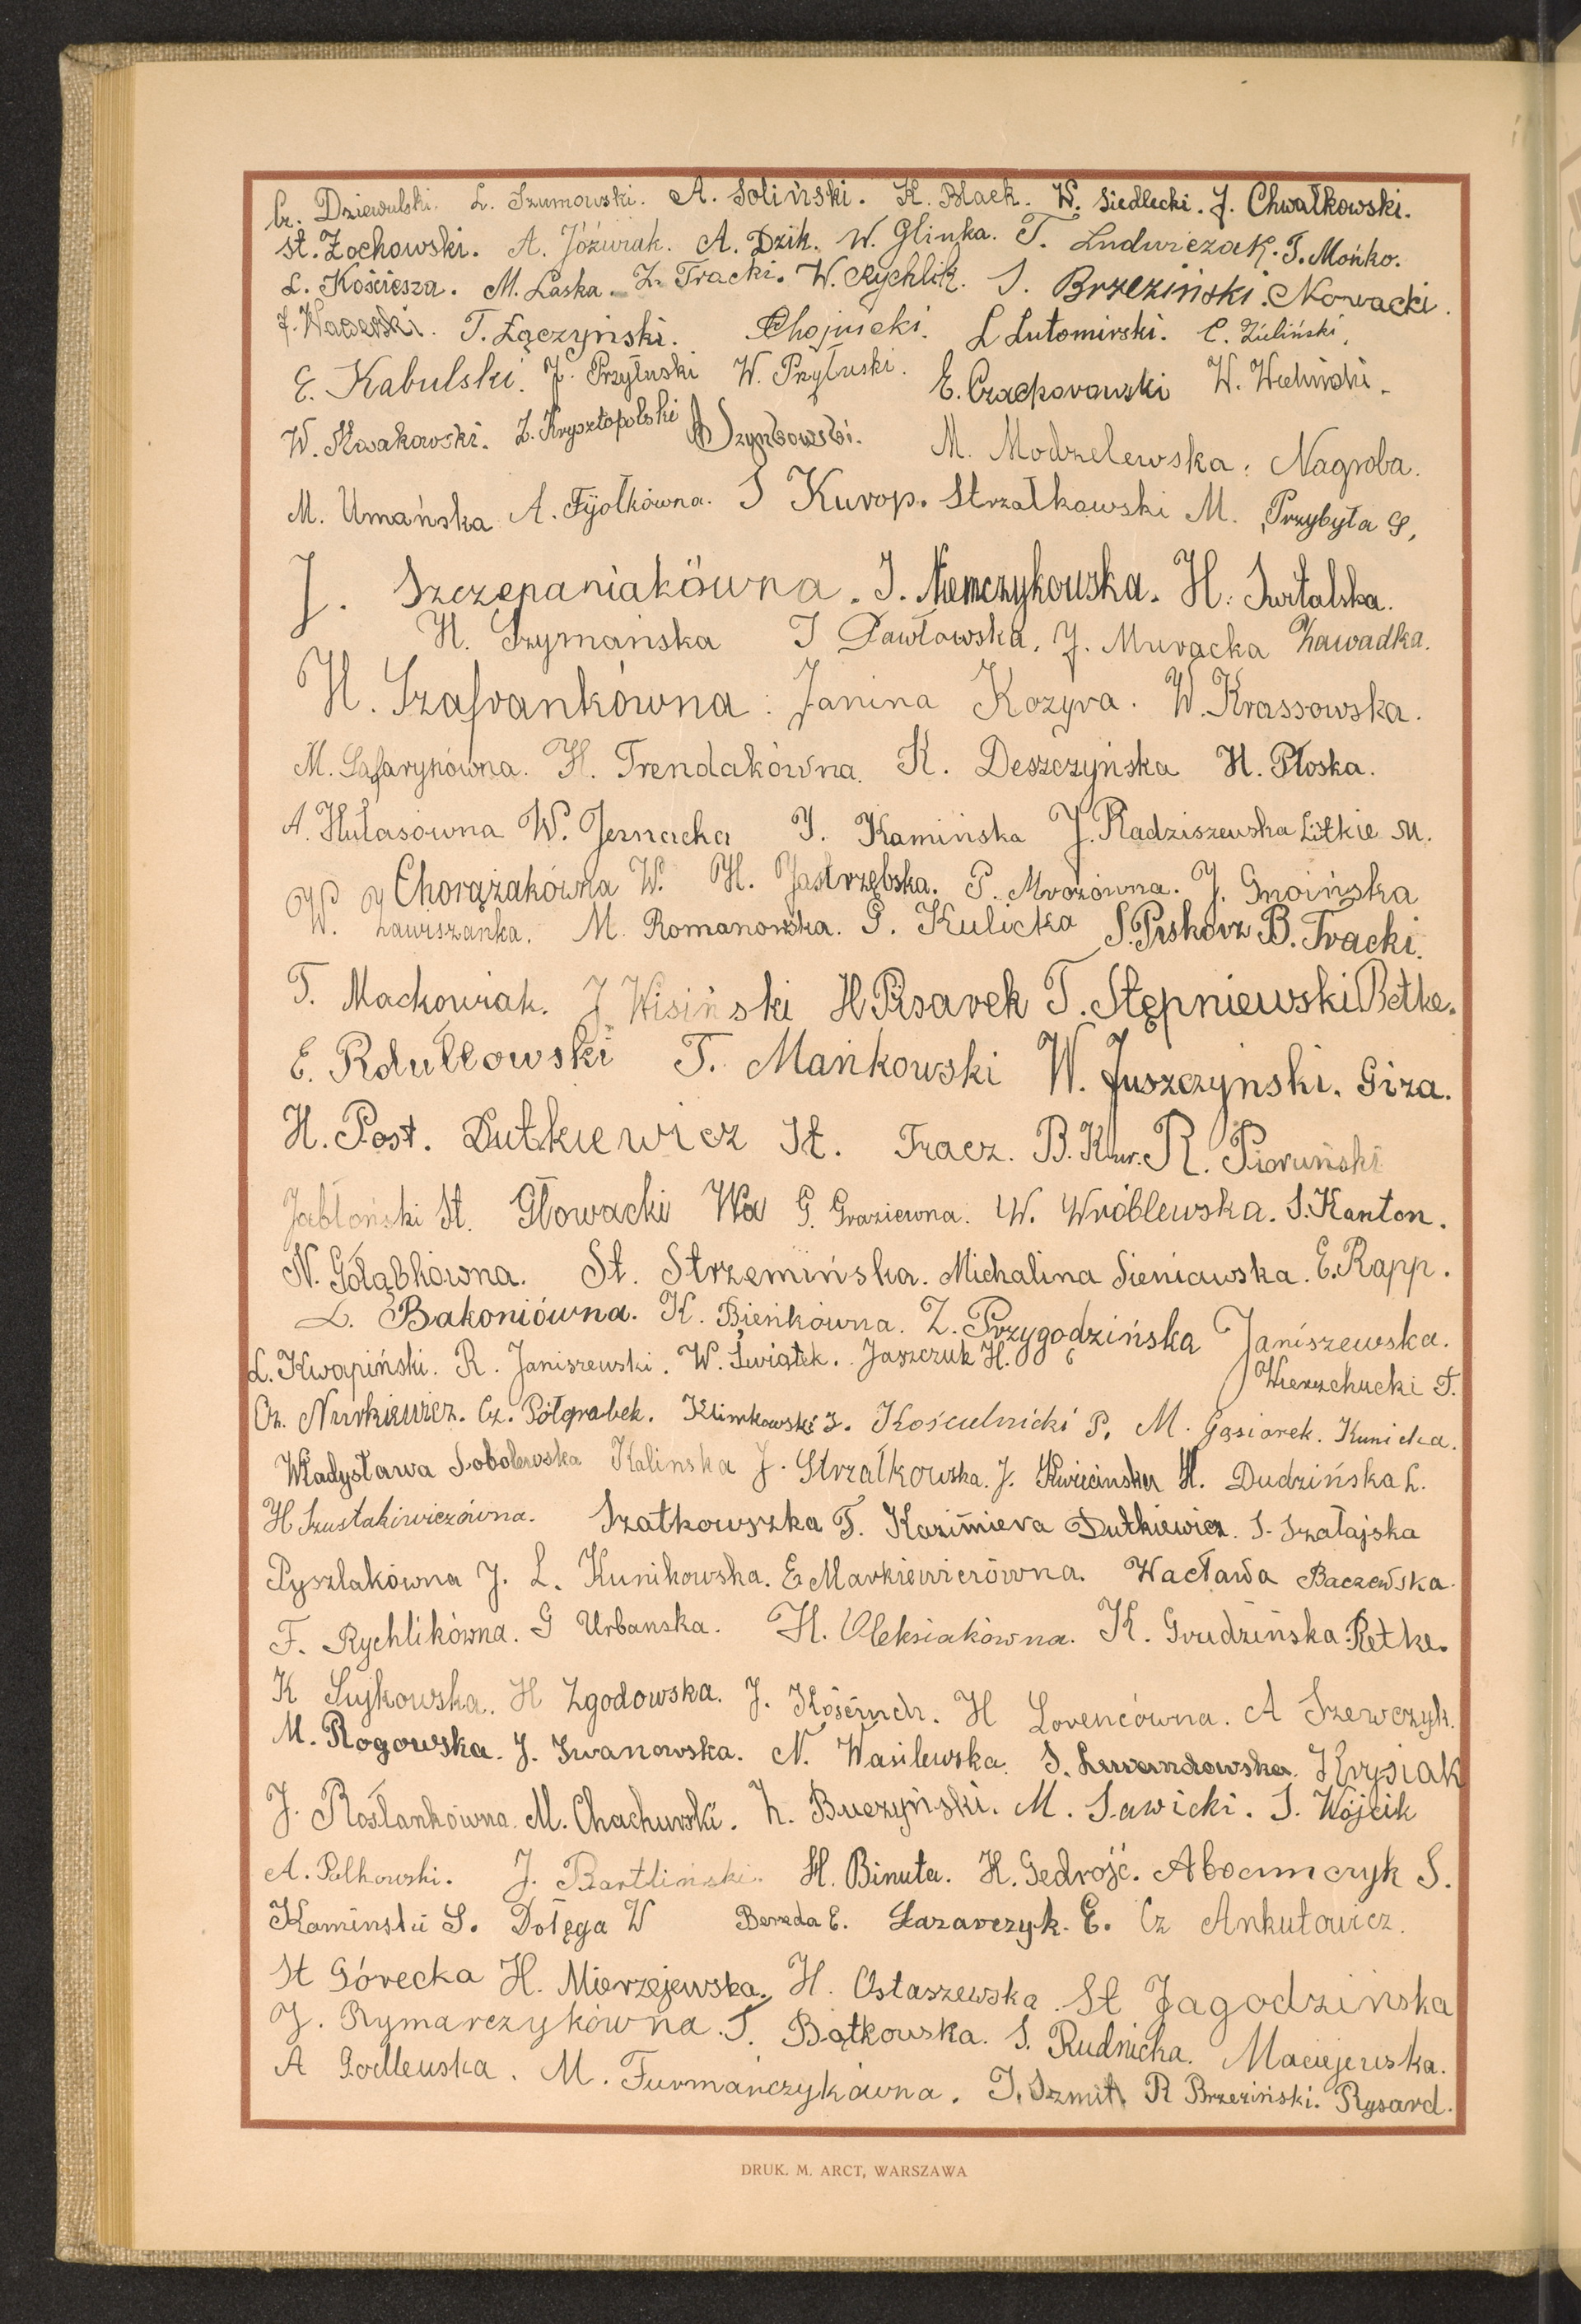 Cz. Dziewulski. L. Szumowski. A. Soliński. K. Black. W. Siedlecki. J. Chwałkowski.
St. Żochowski. A. Jóźwiak. A. Dzik. W. Glinka. T. Ludwiczak. T. Mońko.
L. Kościesza. M. Laska. Z. Tracki. W. Rychlik. S. Brzeziński. Nowacki.
J. T. Łączyński. Chojnicki. L Lutomirski. C. Zieliński,
E. Kabulski. J. Przyłuski W. Przyłuski. E. W.
W. Z. Krysztopolski M. Modzelewska. Nagroba.
M. Umańska A. Fijołkówna. S Kurop. Strzałkowski M. Przybyła S,
J. Szczepaniakówna. J. Niemczykowska. H. Switalska.
H. Szymańska J Pawłowska. J. Muracka Zawadka.
H. Szafrankówna. Janina Kozyra. W. Krassowska.
M. Safarynówna. H. Trendakówna. K. Deszczyńska H. Płoska.
A. Hułasówna W. Jernacha J. Kamińska J. Radziszewska Litkie M.
Chorążakówna W. H. Jastrzębska. P. Mrozówna. J. Gnoińska
W. Zawiszanka. M. Romanowska. G. Kulicka S. Piskorz B. Tracki.
T. Mackowiak. J Wisiński H Pisarek T. Stępniewski Betke.
E. Rdułtowski T. Mańkowski W. Juszczynski. Giza.
H. Post. Dutkiewicz St. Tracz. B. Kur. R. Pioruński
Jabłoński St. Głowacki Wa G. Graziewna. W. Wróblewska. S. Kanton.
N. Gołąbkówna. St. Strzemińska. Michalina Sieniawska. E. Rapp.
L. Bakoniówna. K. Bieńkówna. Z. Przygodzińska Janiszewska.
L. Kwapiński. R. Janiszewski. W. Świątek. Jaszczuk H. Wierzchucki T.
Cz. Nurkiewicz. Cz. Półgrabek. Klimkowski J. Kościelnicki P. M. Gąsiorek. Kunicka.
Władysława Sobolewska Kalinska J. Strzałkowska. J. Kwiecinska H. Dudzińska L.
H Szustakiwiczówna. Szatkowszka T. Kazimiera Dutkiewicz. S. Szałajska
Pyszlakówna J. L. Kunikowska. E Markiewiczówna. Wacława Baczewska.
F. Rychlikówna. G Urbanska. H. Oleksiakówna. K. Grudzińska. Retke.
K Sujkowska. H Zgodowska. J. H Lorencówna. A Szewczyk.
M. Rogowska. J. Iwanowska. N. Wasilewska. S. Lewandowska. Krysiak
J. Roślankówna. M. Chachurski. Z. Buczyński. M. Sawicki. S. Wójcik
A. Pelkowski. J. Bartliński. H. Binuta. H. Gedrojć. S.
Kaminski S. Dołęga W Bereda E. Łazarczyk. E. Cz Ankutowicz.
St Górecka H. Mierzejewska. H. Ostaszewska. St Jagodzińska
J. Rymarczykówna. T. Bątkowska. S. Rudnicka. Maciejewska.
A Godlewska. M. Furmańczykówna. J. Szmit. R Brzeziński. Rysard.
DRUK. M. ARCT, WARSZAWA